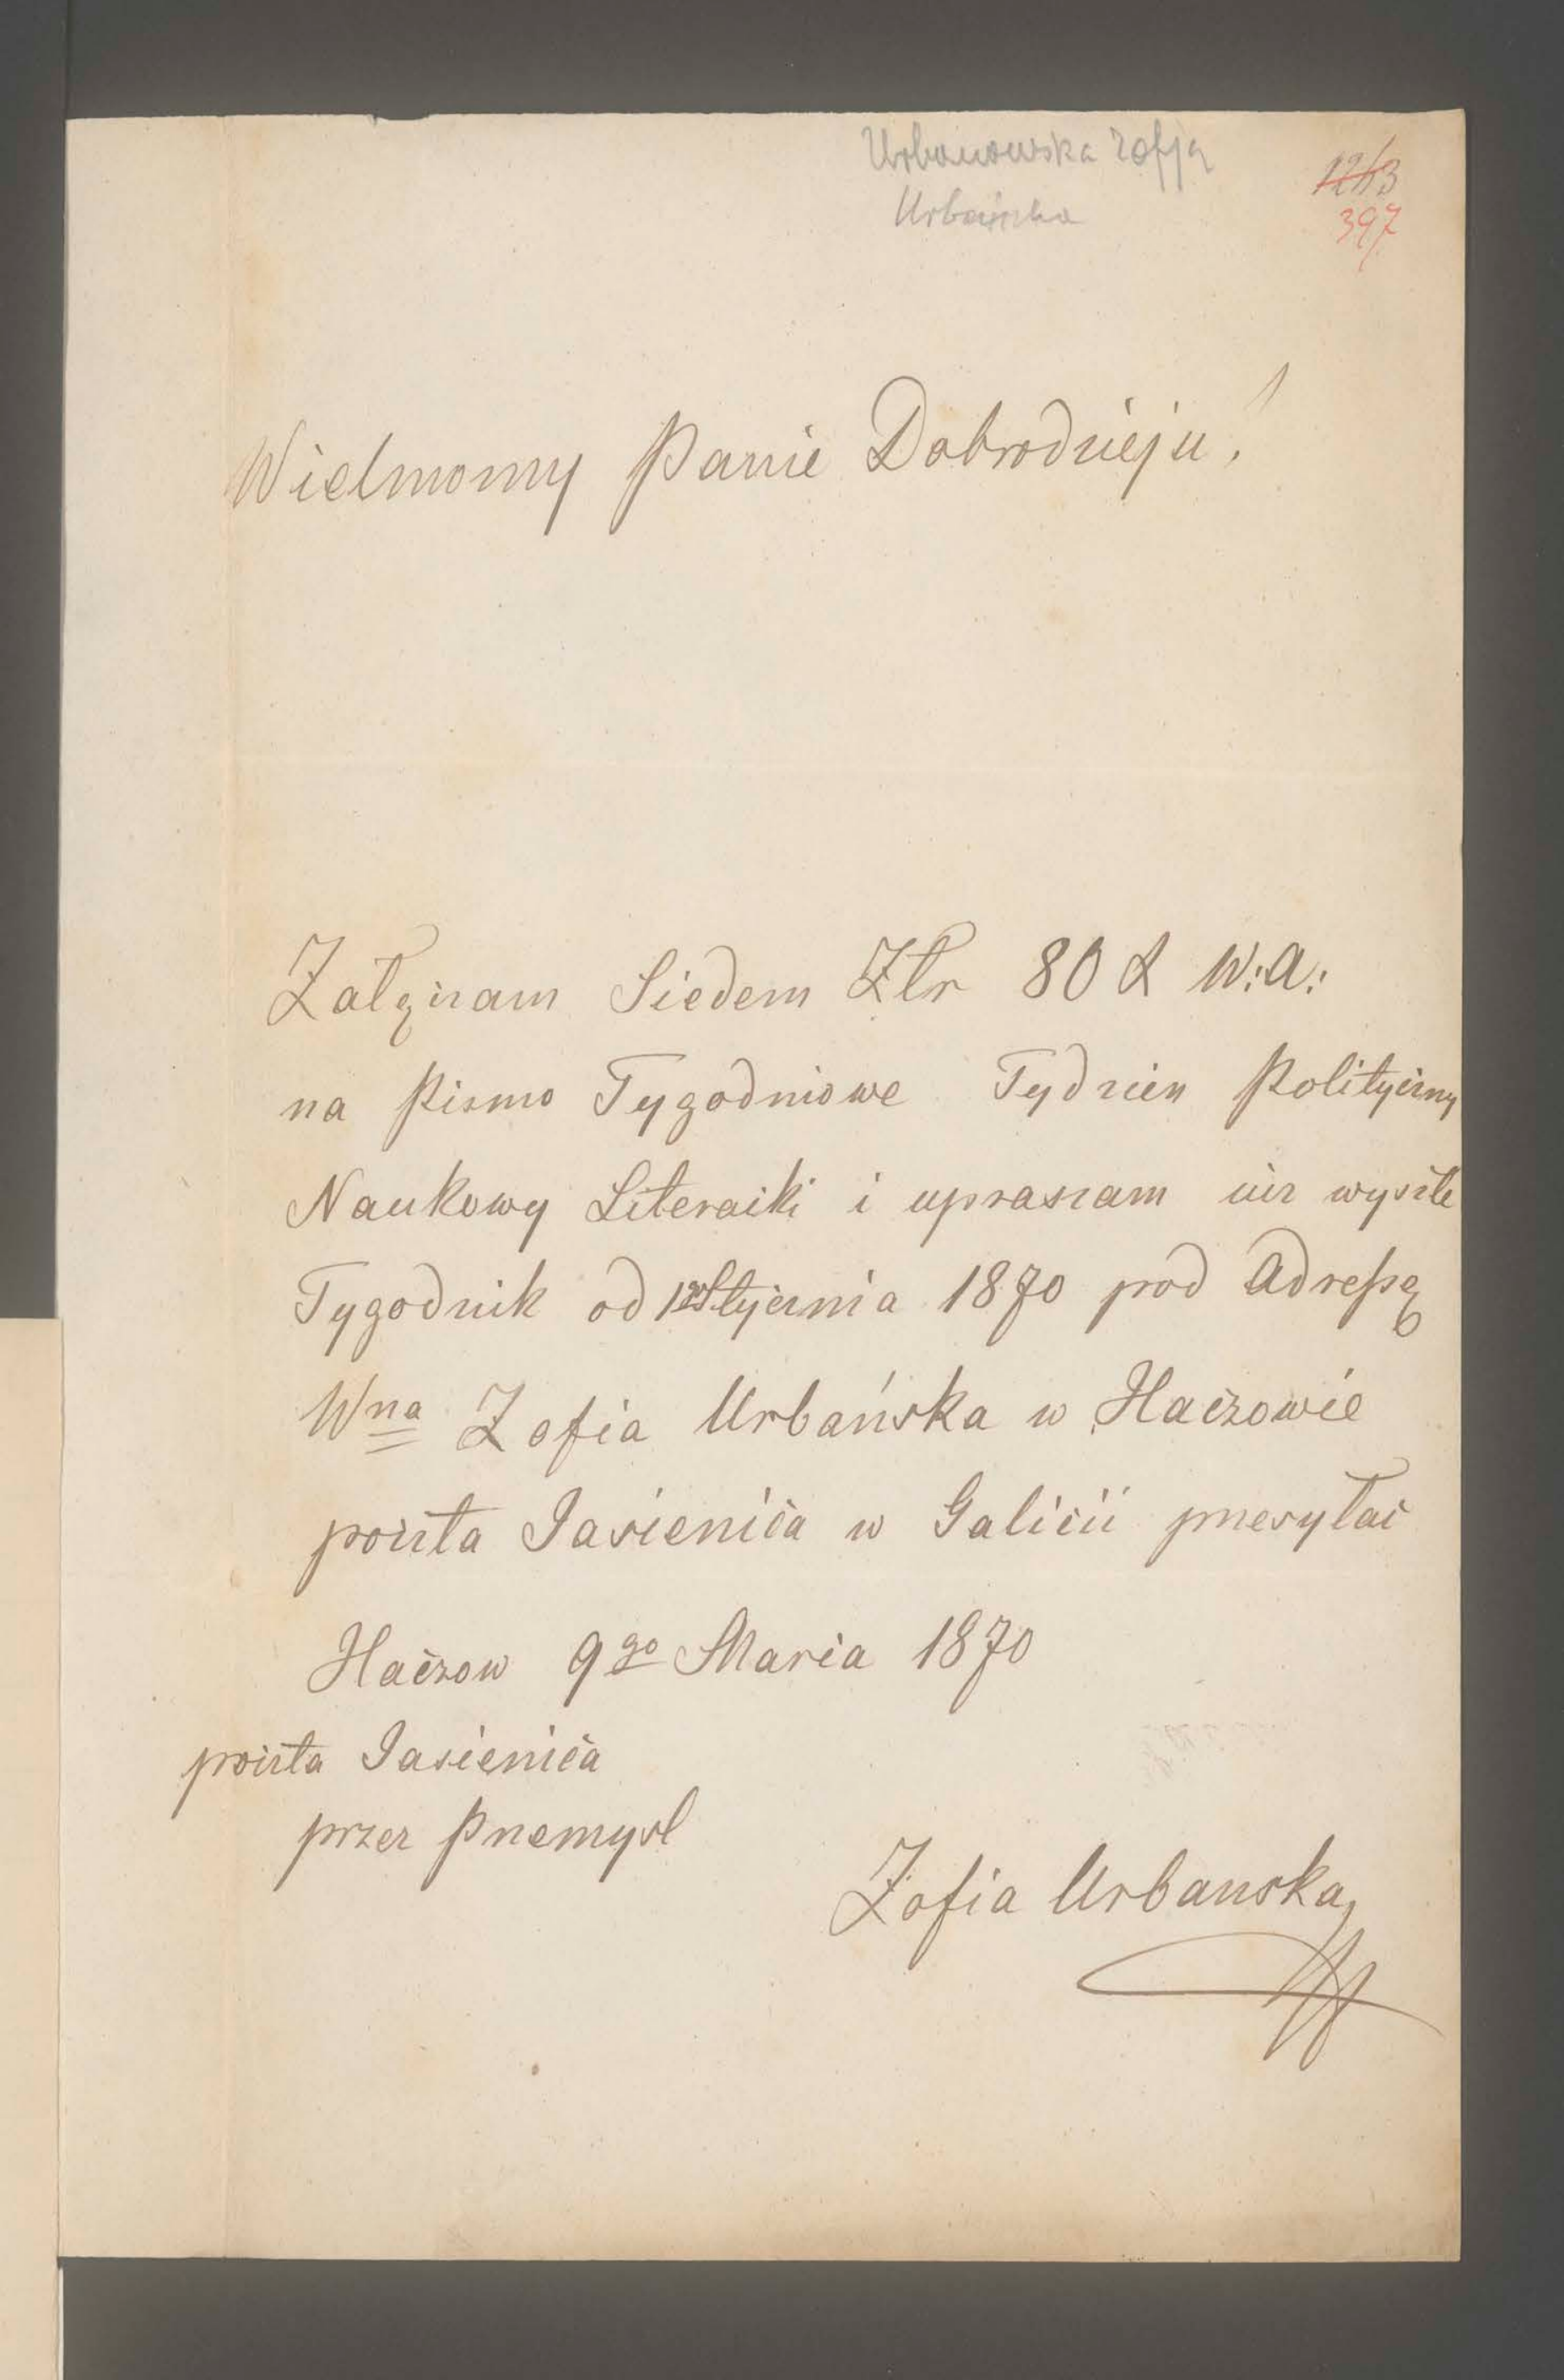 Urbanowska Zofja
Urbańska
1213
397
Wielmozny Panie Dobrodzieju!
Załączam Siedem Złr 80 W:A:
na Pismo Tygodniowe Tydzien Polityczny
Naukowy Literacki i upraszam
Tygodnik od 1go Stycznia 1870 pod Adresą
Wna Zofia Urbańska w Haczowie
poczta Jasienica w Galicii przesyłać
Haczow 9go Marca 1870
poczta Jasienica
przez Przemysl
Zofia Urbanska